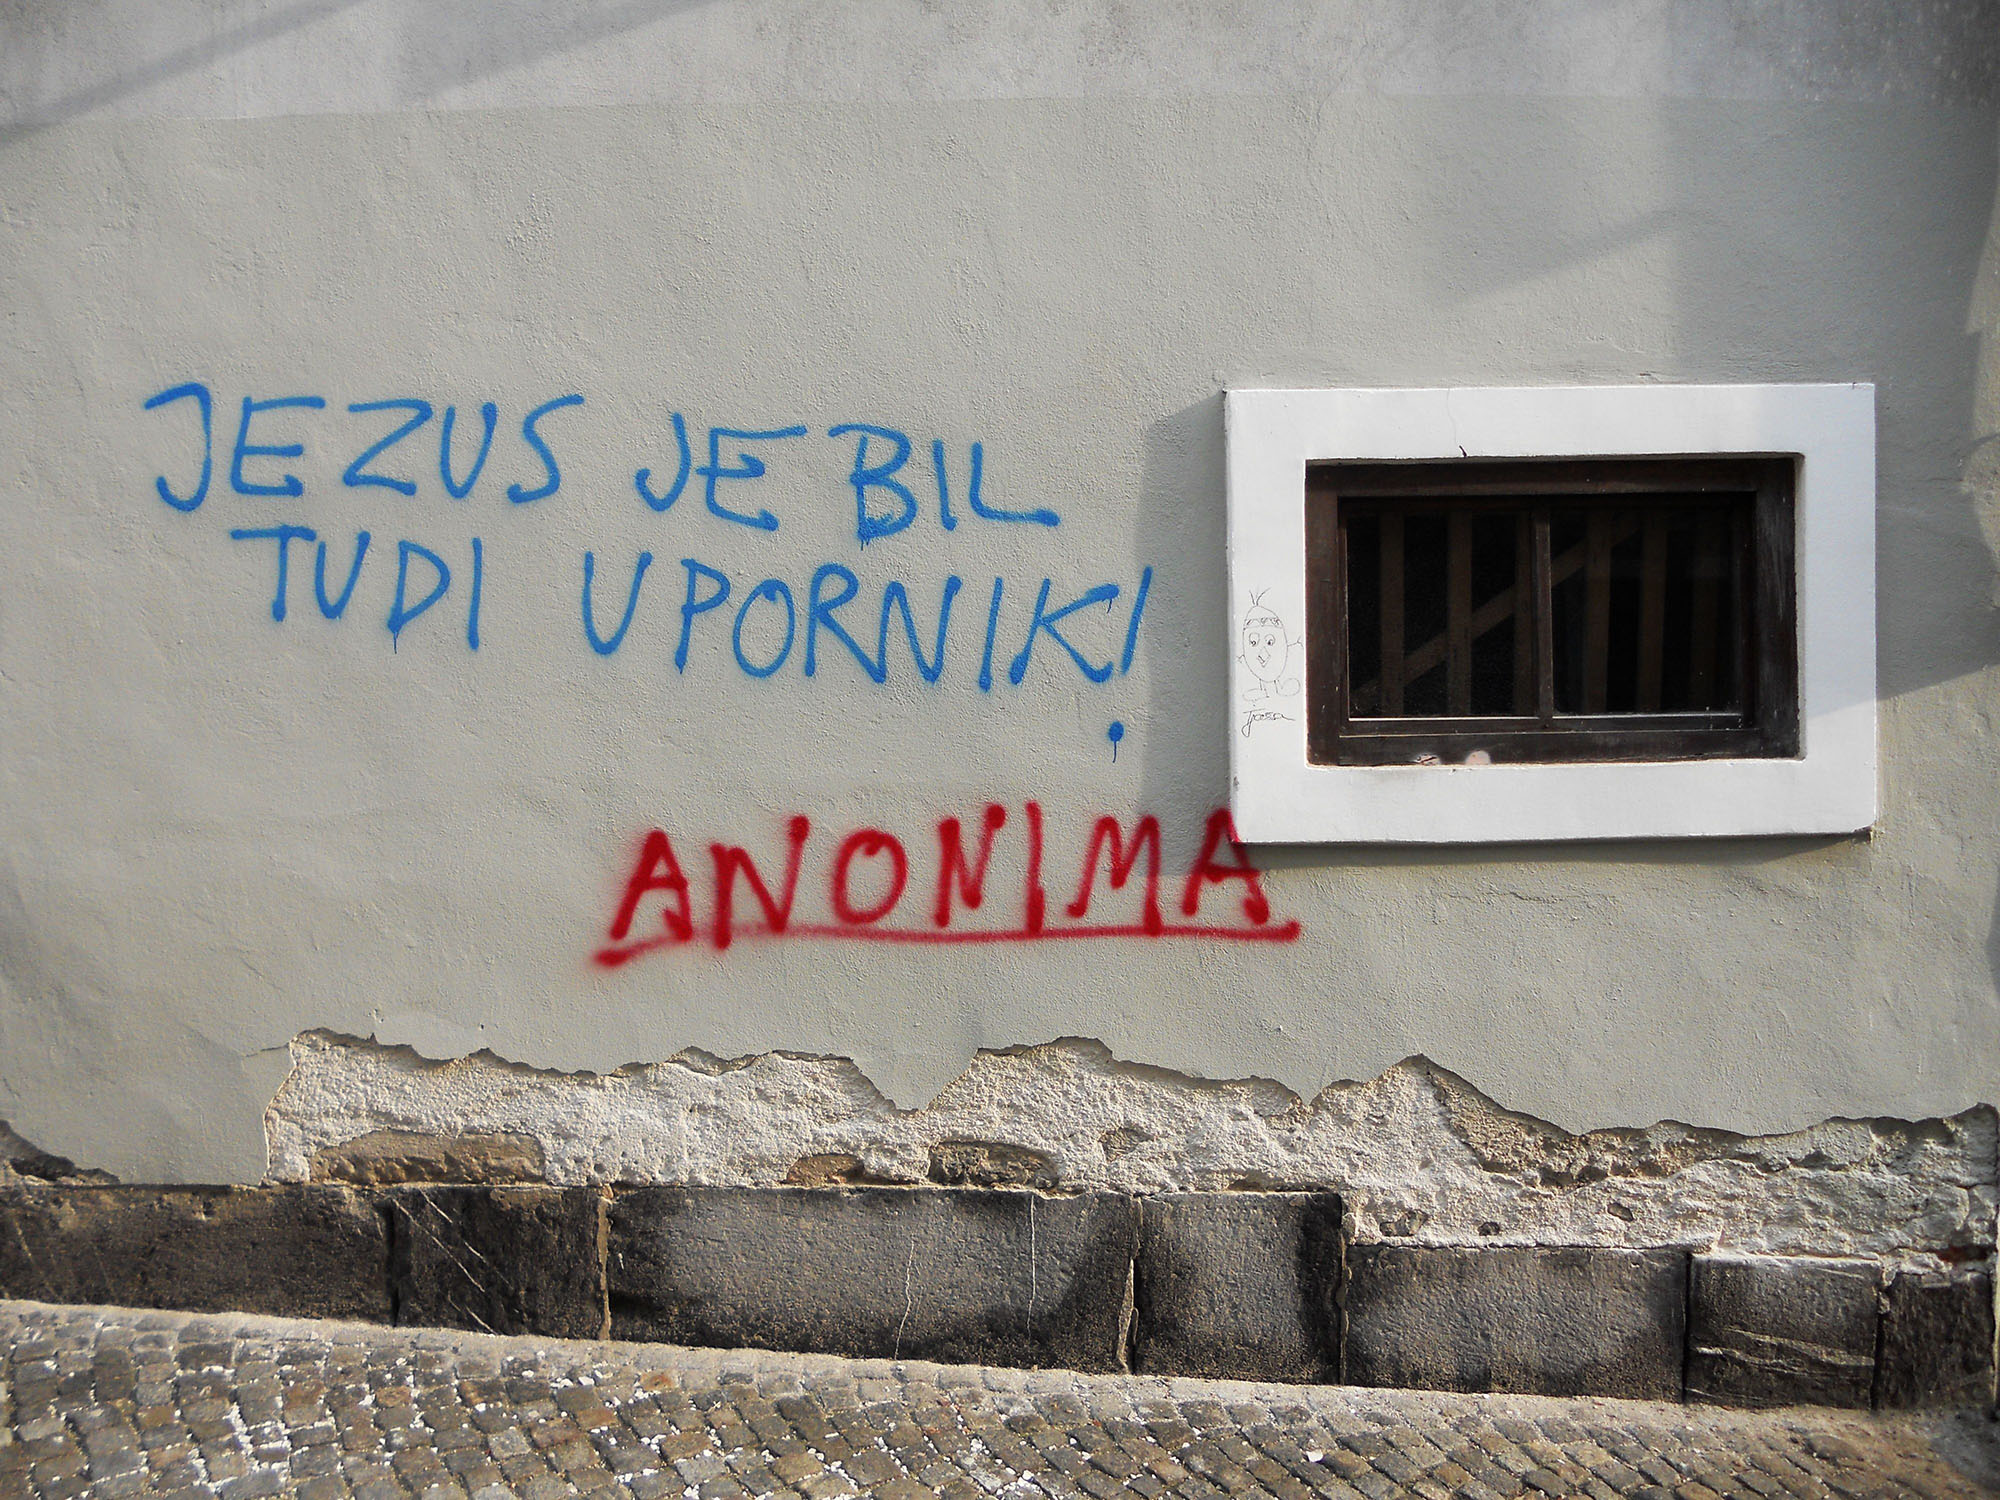 JEZUS JE BIL
TUDI UPORNIK!
ANONIMA